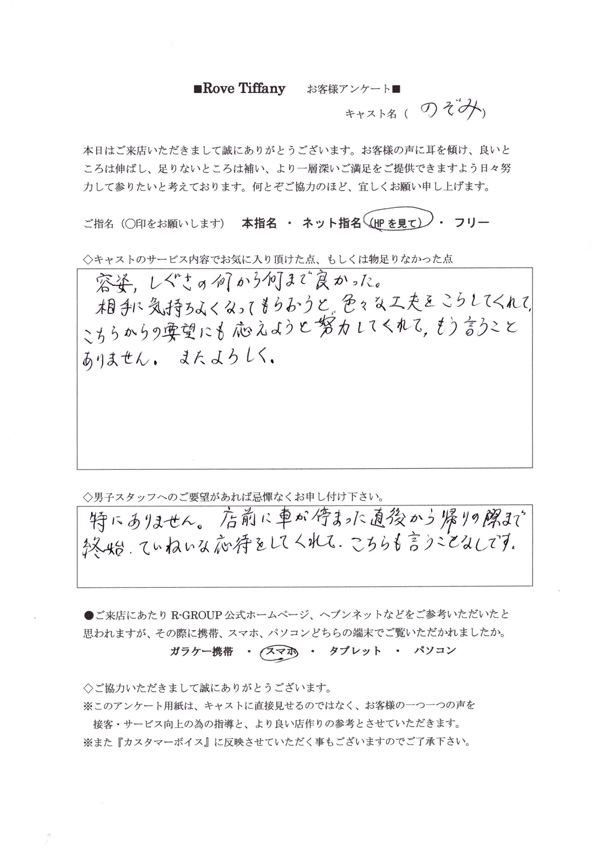 ■Rove Tiffany お客様アンケート■
キャスト名（ のぞみ ）
本日はご来店いただきまして誠にありがとうございます。お客様の声に耳を傾け、良いと
ころは伸ばし、足りないところは補い、より一層深いご満足をご提供できますよう日々努
力して参りたいと考えております。何とぞご協力のほど、宜しくお願い申し上げます。
ご指名（〇印をお願いします） 本指名 ・ ネット指名（HPを見て） ・ フリー
◇キャストのサービス内容でお気に入り頂けた点、もしくは物足りなかった点
容姿，しぐさの何から何まで良かった。
相手に気持ちよくなってもらおうと，色々な工夫をこらしてくれて，
こちらからの要望にも応えようと努力してくれて，もう言うこと
ありません。 またよろしく。
◇男子スタッフへのご要望があれば忌憚なくお申し付け下さい。
特にありません。店前に車が停まった直後から帰りの際まで
終始，ていねいな応待をしてくれて，こちらも言うことなしです。
●ご来店にあたり R-GROUP 公式ホームページ、ヘブンネットなどをご参考いただいたと
思われますが、その際に携帯、スマホ、パソコンどちらの端末でご覧いただかれましたか。
ガラケー携帯 ・ スマホ ・ タブレット ・ パソコン
◇ご協力いただきまして誠にありがとうございます。
※このアンケート用紙は、キャストに直接見せるのではなく、お客様の一つ一つの声を
接客・サービス向上の為の指導と、より良い店作りの参考とさせていただきます。
※また『カスタマーボイス』に反映させていただく事もございますのでご了承下さい。